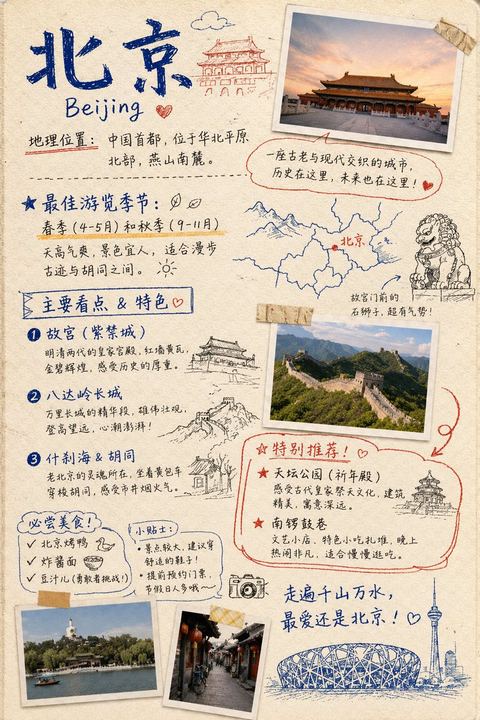 北京
Beijing
地理位置：中国首都，位于华北平原
北部，燕山南麓。
一座古老与现代交织的城市，
历史在这里，未来也在这里！
★ 最佳游览季节：
春季（4-5月）和秋季（9-11月）
天高气爽，景色宜人，适合漫步
古迹与胡同之间。
北京
故宫门前的
石狮子，超有气势！
主要看点 & 特色
1 故宫（紫禁城）
明清两代的皇家宫殿，红墙黄瓦，
金碧辉煌，感受历史的厚重。
2 八达岭长城
万里长城的精华段，雄伟壮观，
登高望远，心潮澎湃！
3 什刹海 & 胡同
老北京的灵魂所在，坐着黄包车
穿梭胡同，感受市井烟火气。
★ 特别推荐！
★ 天坛公园（祈年殿）
感受古代皇家祭天文化，建筑
精美，寓意深远。
★ 南锣鼓巷
文艺小店、特色小吃扎堆，晚上
热闹非凡，适合慢慢逛吃。
必尝美食！
✓ 北京烤鸭
✓ 炸酱面
✓ 豆汁儿（勇敢者挑战！）
小贴士：
• 景点较大，建议穿
舒适的鞋子！
• 提前预约门票，
节假日人多哦～
走遍千山万水，
最爱还是北京！